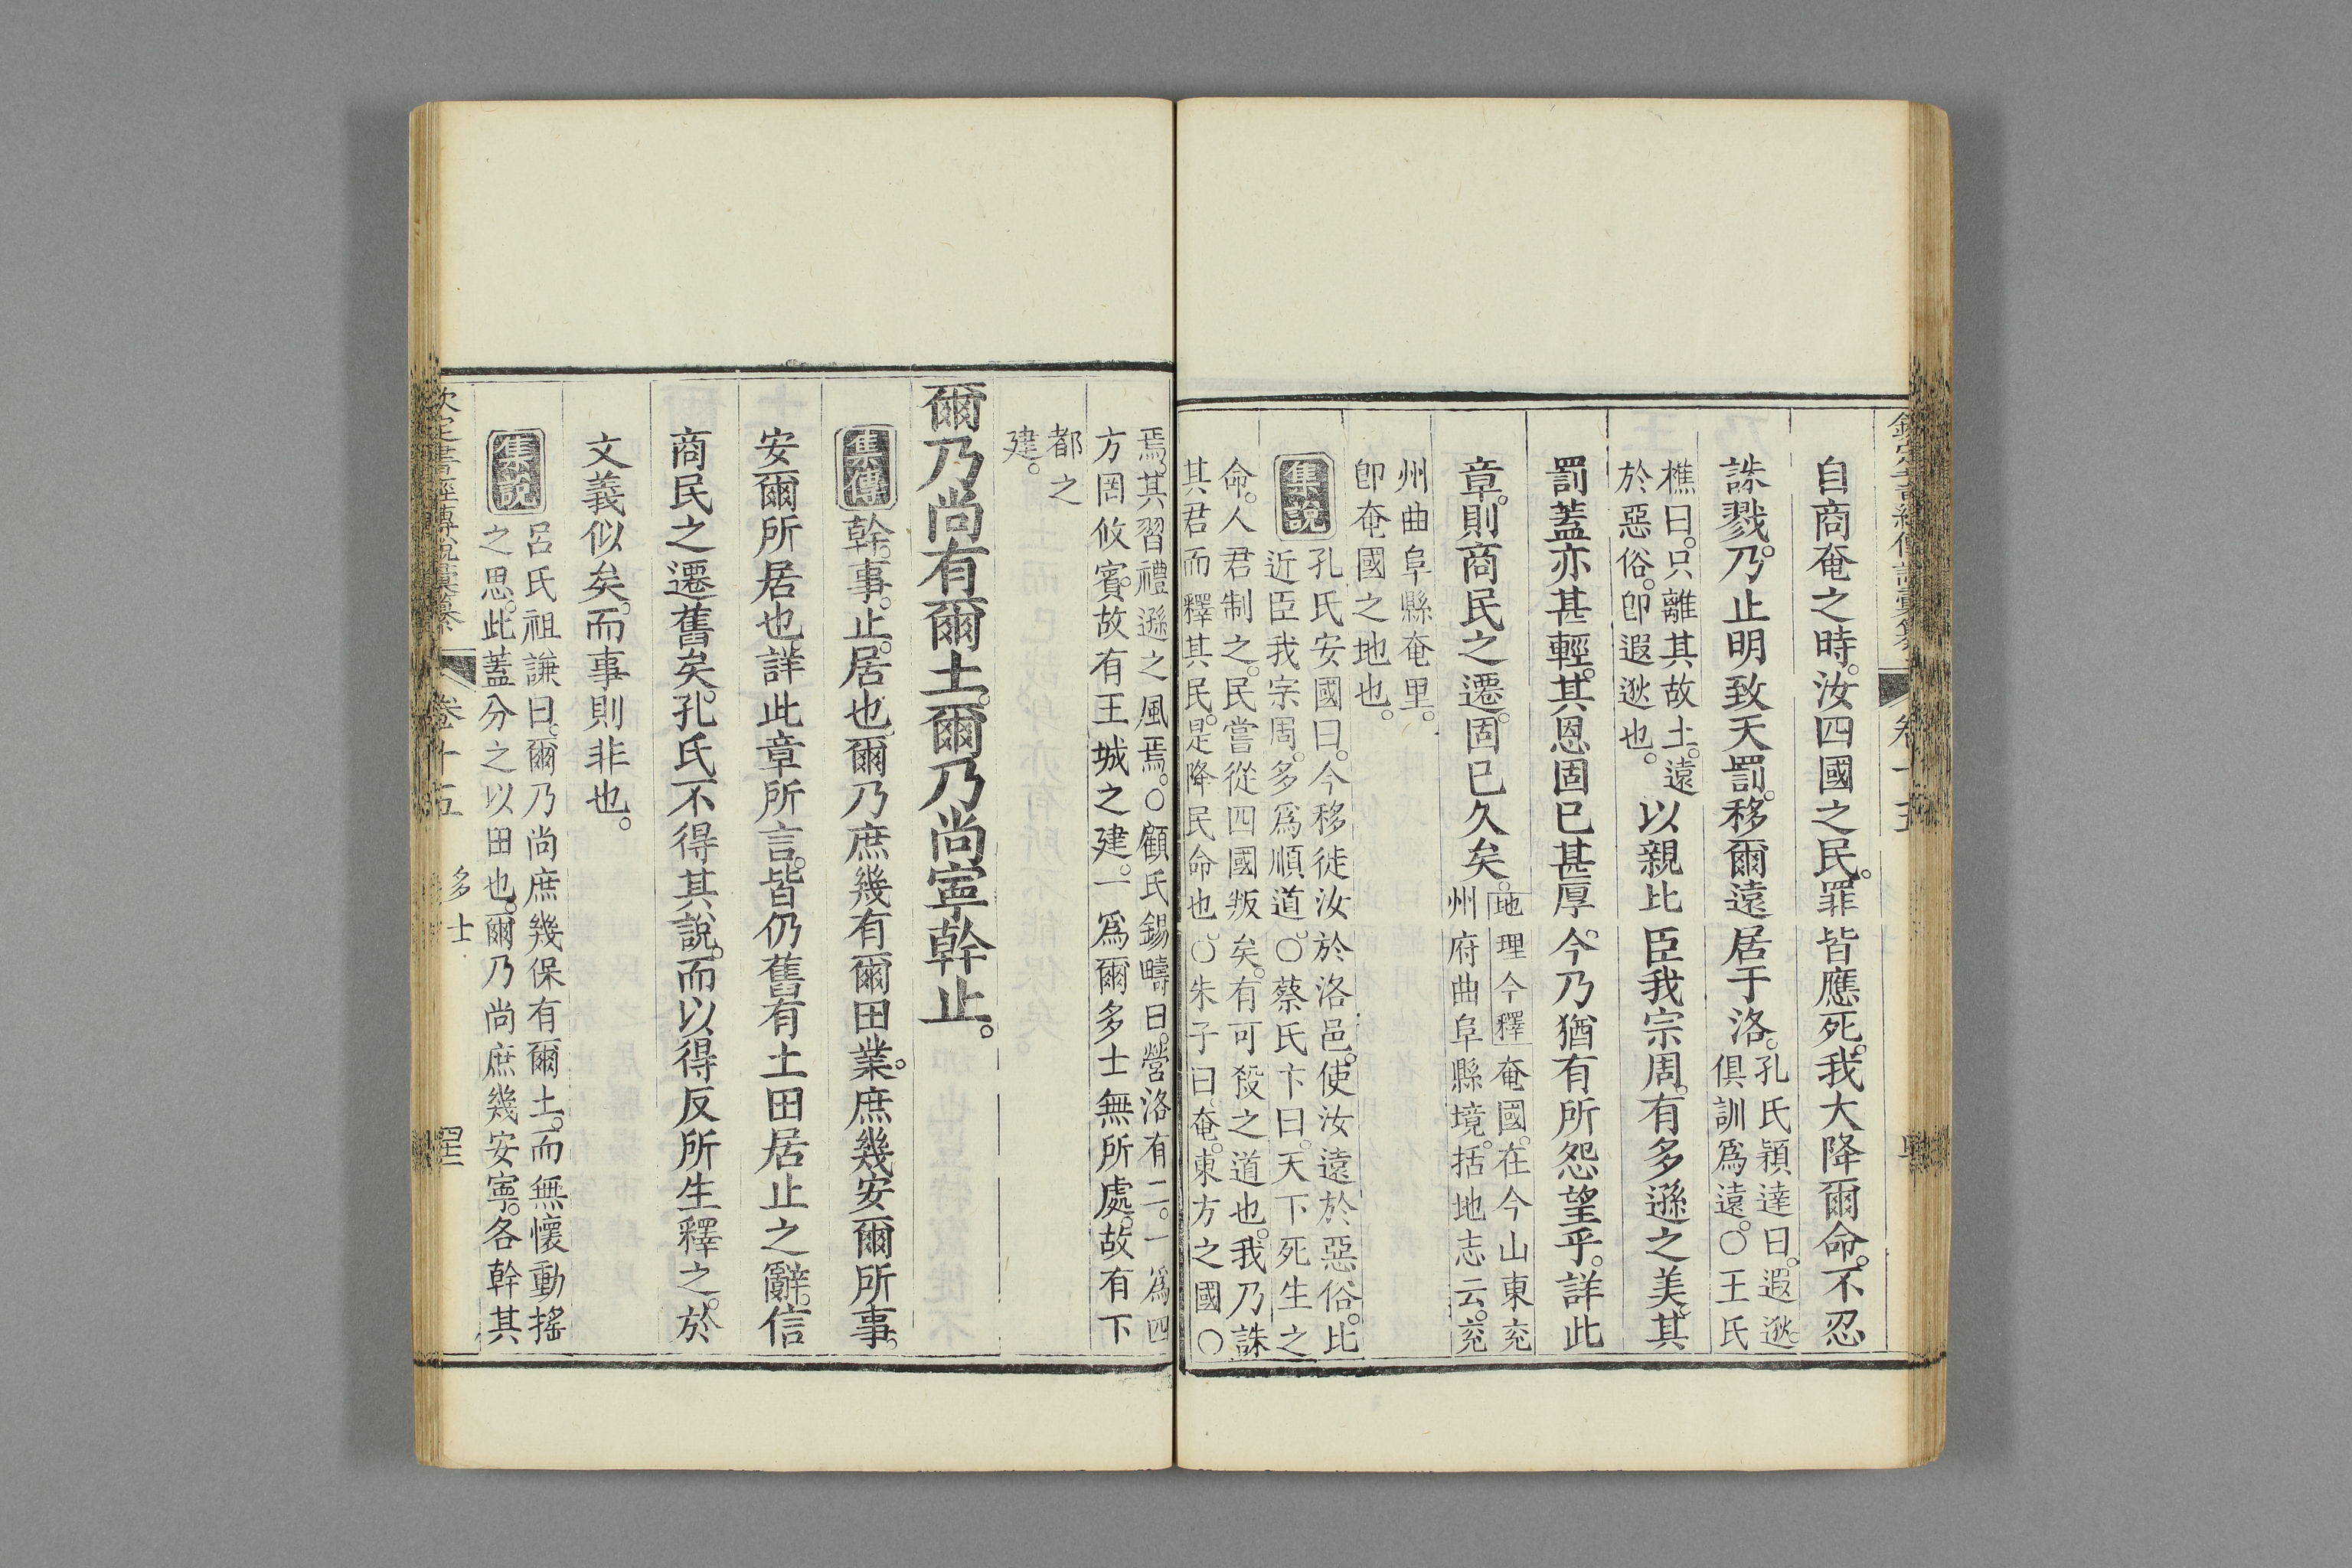 自商奄之時。汝四國之民。罪皆應死。我大降爾命。不忍
誅戮。乃止明致天罰。移爾遠居于洛。孔氏穎達曰。遐逖。
俱訓爲遠。○王氏
樵曰。只離其故土。遠
於惡俗。卽遐逖也。以親比臣我宗周。有多遜之美。其
罰蓋亦甚輕。其恩固已甚厚。今乃猶有所怨望乎。詳此
章。則商民之遷。固已久矣。地理今釋 奄國。在今山東兗
州府曲阜縣境。括地志云。兗
州曲阜縣奄里。
卽奄國之地也。
集說
孔氏安國曰。今移徙汝於洛邑。使汝遠於惡俗。比
近臣我宗周。多爲順道。○蔡氏卞曰。天下死生之
命。人君制之。民嘗從四國叛矣。有可殺之道也。我乃誅
其君而釋其民。是降民命也。○朱子曰。奄。東方之國○
卷十五
焉。其習禮遜之風焉。○顧氏錫疇曰。營洛有二。一爲四
方罔攸賓。故有王城之建。一爲爾多士無所處。故有下
都之
建。
爾乃尚有爾土。爾乃尚寧幹止。
集傳
幹。事。止。居也。爾乃庶幾有爾田業。庶幾安爾所事。
安爾所居也。詳此章所言。皆仍舊有土田居止之辭。信
商民之遷舊矣。孔氏不得其說。而以得反所生釋之。於
文義似矣。而事則非也。
集說
呂氏祖謙曰。爾乃尚庶幾保有爾土。而無懷動搖
之思。此蓋分之以田也。爾乃尚庶幾安寧。各幹其
欽定書經傳說彙纂 卷十五 多士